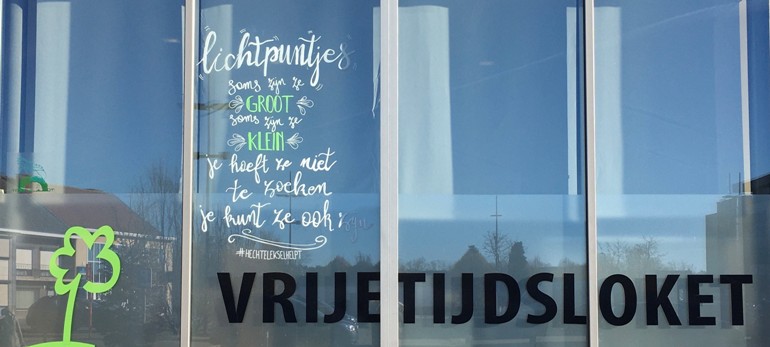 "lichtpuntjes"
soms zijn ze
GROOT
soms zijn ze
KLEIN
je hoeft ze niet
te zoeken
je kunt ze ook zijn
#HECHTELEKSELHELPT
VRIJETIJDSLOKET